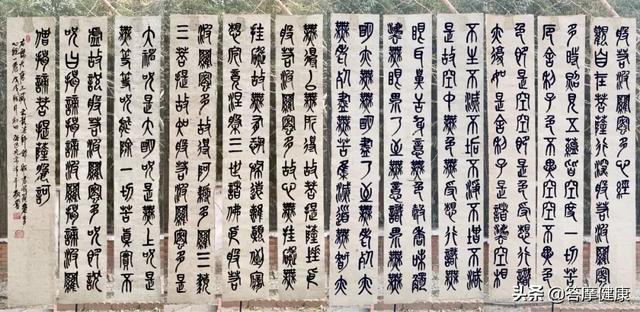 般若波羅蜜多心經
觀自在菩薩行深般若波羅蜜
多時照見五蘊皆空度一切苦
厄舍利子色不異空空不異色
色即是空空即是色受想行識
亦復如是舍利子是諸法空相
不生不滅不垢不淨不增不減
是故空中無色無受想行識無
眼耳鼻舌身意無色聲香味觸
法無眼界乃至無意識界無無
明亦無無明盡乃至無老死亦
無老死盡無苦集滅道無智亦
無得以無所得故菩提薩埵依
般若波羅蜜多故心無罣礙無
罣礙故無有恐怖遠離顛倒夢
想究竟涅槃三世諸佛依般若
波羅蜜多故得阿耨多羅三藐
三菩提故知般若波羅蜜多是
大神咒是大明咒是無上咒是
無等等咒能除一切苦真實不
虛故說般若波羅蜜多咒即說
咒曰揭諦揭諦波羅揭諦波羅
僧揭諦菩提薩婆訶
头条 @答摩健康